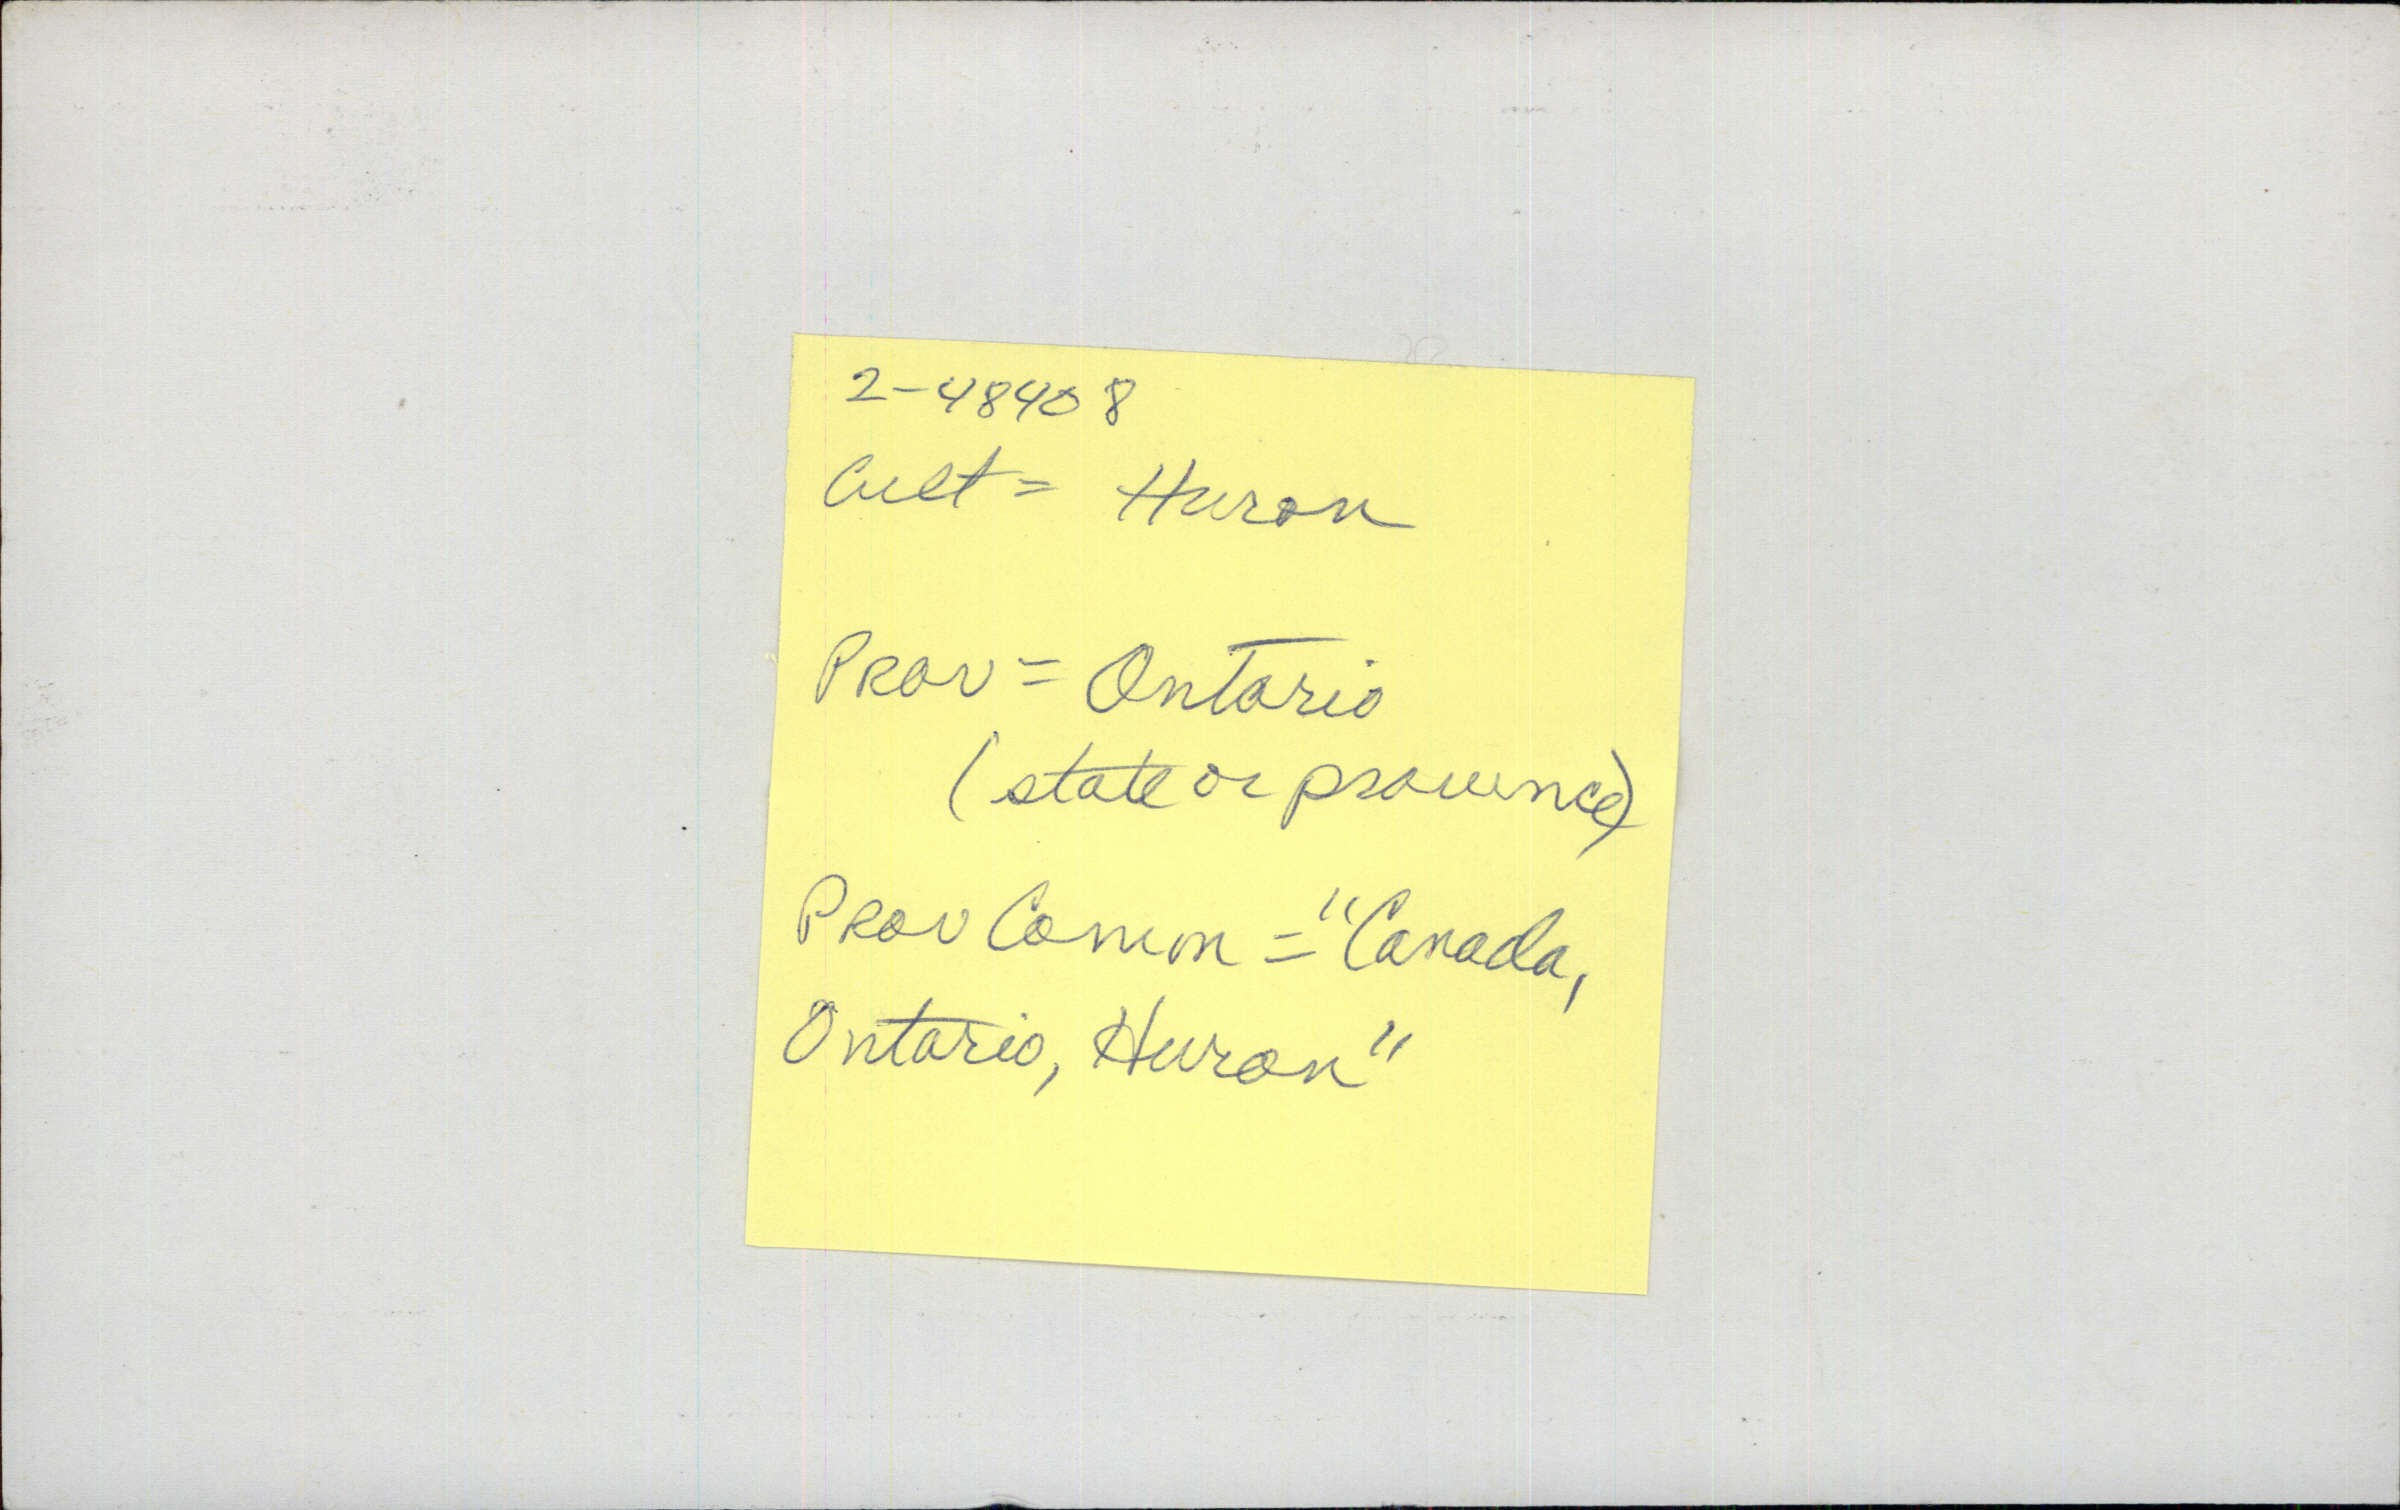 2-48408
Cult = Huron
Prov = Ontario
(state or province)
Prov Comm = "Canada,
Ontario, Huron"